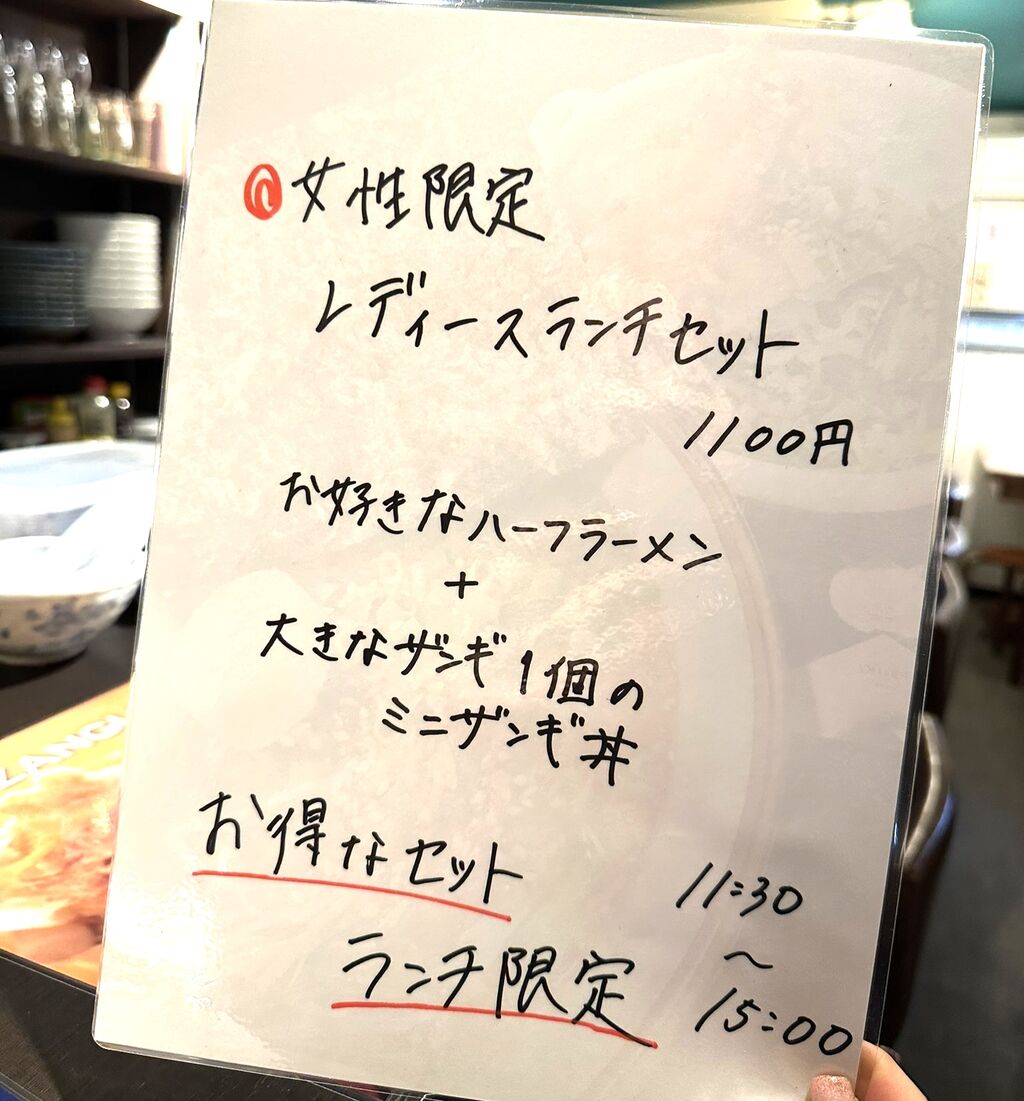 女性限定
レディースランチセット
1100円
お好きなハーフラーメン
+
大きなザンギ1個の
ミニザンギ丼
お得なセット
ランチ限定
11:30
〜
15:00
ZANGI